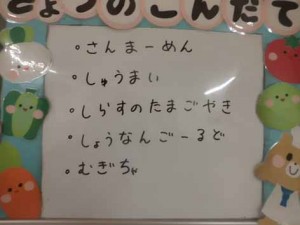 きょうのこんだて
。さんまーめん
。しゅうまい
。しらすのたまごやき
。しょうなんごーるど
。むぎちゃ